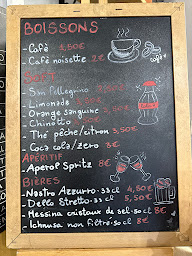 BOISSONS
- Café 1,50€
- Café noisette 2€
SOFT
San pellegrino
Limonade
Orange sanguine
Chinotto
Thé pêche/citron 3,50€
Coca cola/zero 3€
APÉRITIF
- Aperol Spritz 8€
BIÈRES
- Nastro Azzurro 33cl 4,50€
- Dello Stretto 33cl 5,50€
- Messina cristaux de sel 50cl 8€
- Ichnusa non filtré 50cl 8€